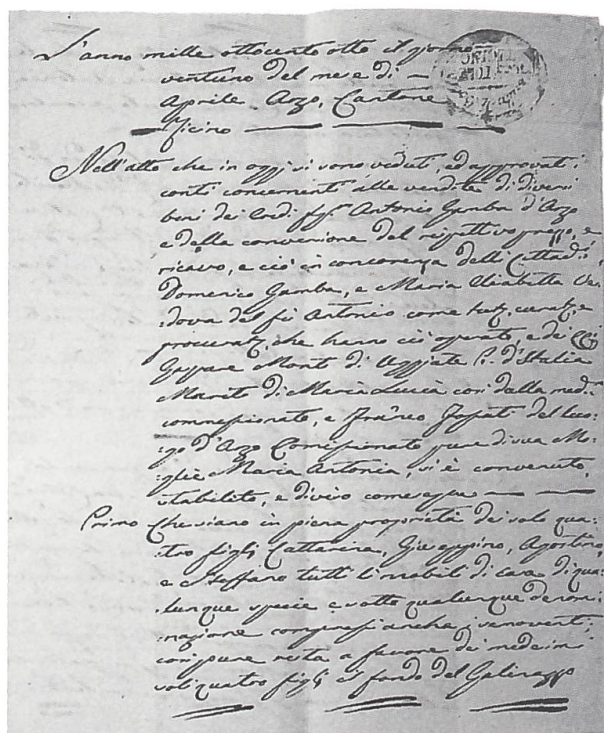 L'anno mille ottocento otto il giorno
ventuno del mese di —
Aprile Arzo, Cantone
— Ticino — — —
Nell'atto che in oggi si sono veduti, ed approvati i
conti concernenti alle vendite di diversi
beni dei Antonio Gamba d'Arzo
e della conversione del rispettivo prezzo, e
ricavo, e ciò in concorenza delli Cittadi:
Domenico Gamba, e Maria Elisabetta Ve:
:dova del fù Antonio come tut.ⁱ, curat.ⁱ, e
procurat.ⁱ che hanno ciò operato, e dei
Gaspare Monti di Uggiate R. d'Italia
Marito di Maria Lucia così dalla med.ᵐᵃ
commissionato, e Fran.co del luo:
:go d'Arzo Comissionato pure di sua Mo:
:glie Maria Antonia, si è convenuto,
stabilito, e diviso come segue — — —
Primo Che siano in piena proprietà dei soli qua:
:tro figli Cattarina, Giuseppino, Agostino,
e Steffano tutti li mobili di casa di qua:
:lunque specie e sotto qualunque denomi:
:nazione compresi anche i semoventi;
così pure resta a favore dei medesimi
soli quatro figli il fondo del